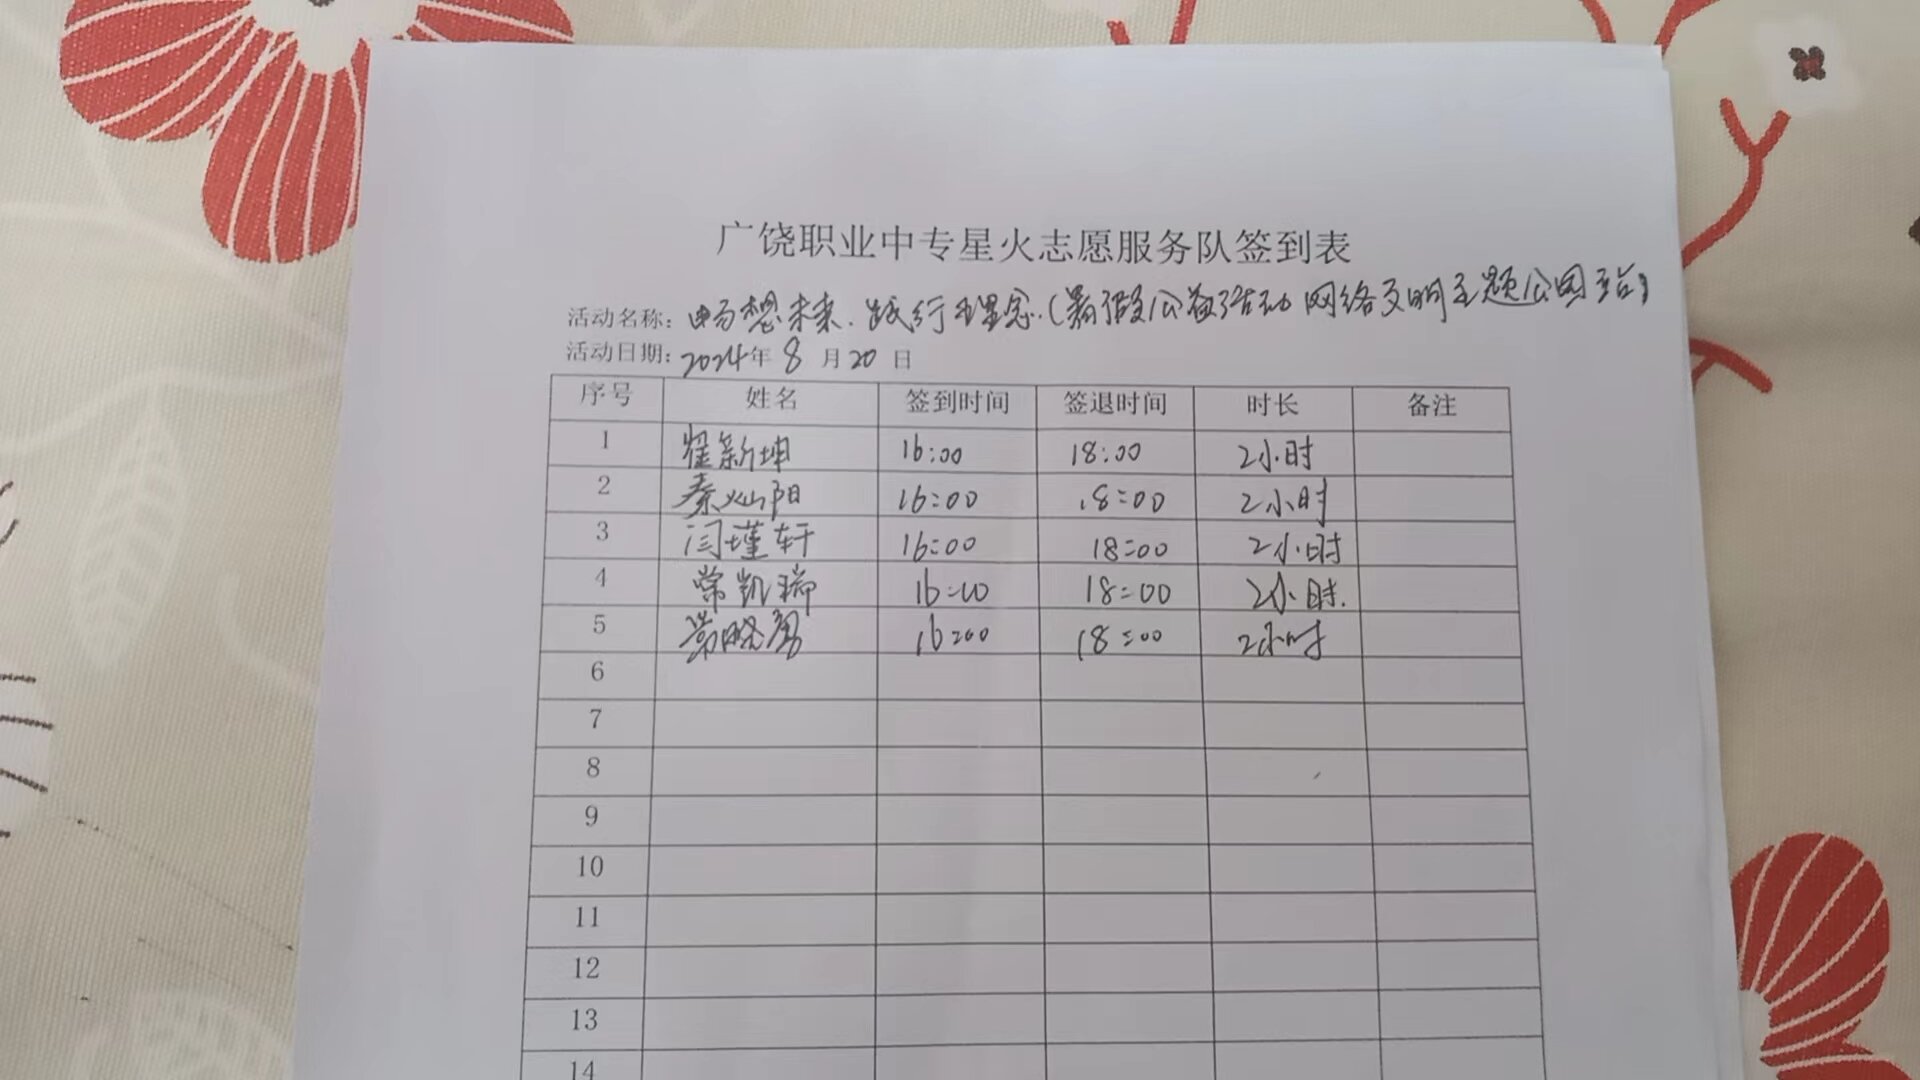 广饶职业中专星火志愿服务队签到表
活动名称：畅想未来.践行理念.(暑假公益活动 网络文明主题公园站)
活动日期：2024年 8 月 20 日
序号 姓名 签到时间 签退时间 时长 备注
1 翟新坤 16:00 18:00 2小时
2 秦灿阳 16:00 18:00 2小时
3 闫瑾轩 16:00 18:00 2小时
4 常凯瑞 16:00 18:00 2小时.
5 16:00 18:00 2小时
6
7
8
9
10
11
12
13
14